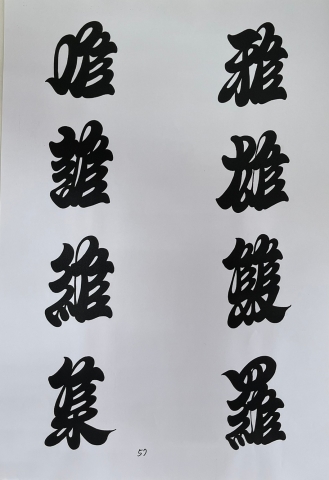 雅雄雙羅
唯誰維集
57